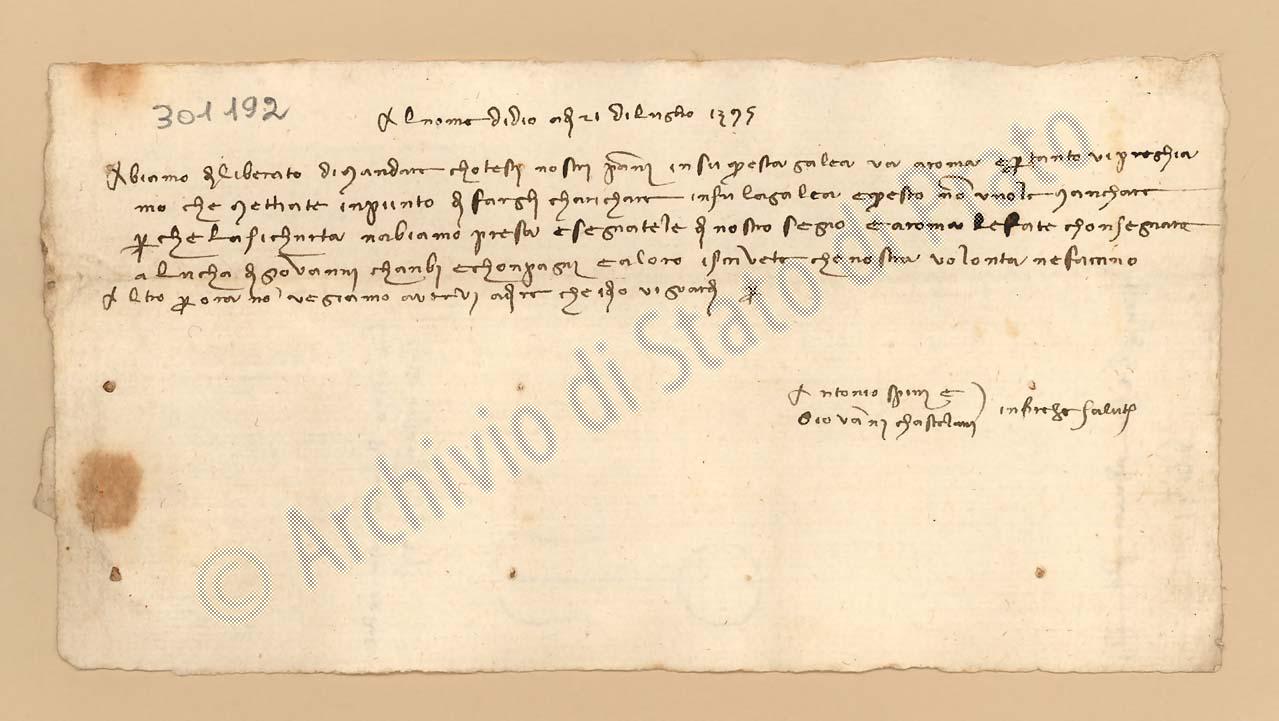 301192
Al nome di dio adi 21 di luglio 1395
Abiamo diliberato di mandare chotesti nostri panni in su questa galea va a Roma e per tanto vi preghia
mo che mettiate in punto di fargli charichare in su la galea e questo non vuole manchare
perche la sichurta n abiamo presa e segniatele di nostro segnio e a Roma le fate chonsegniare
a Lucha di Giovanni e chonpagni e a loro iscrivete che nostra volonta ne faranno
Altro per ora no vegiamo avervi a dire che idio vi guardi per
Antonio e
Giovanni Chastelani
in salute
© Archivio di Stato di Prato